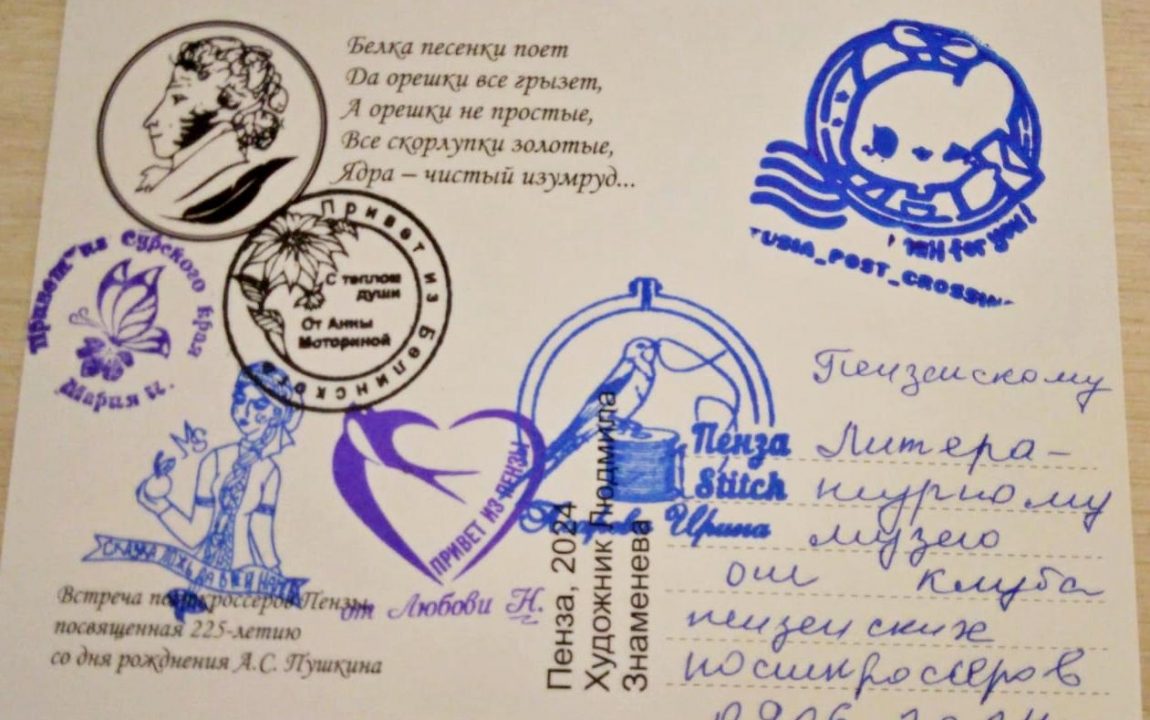 Белка песенки поет
Да орешки все грызет,
А орешки не простые,
Все скорлупки золотые,
Ядра – чистый изумруд...
Привет из Белинского
С теплом
души
От Анны
Моториной
Привет из Сурского края
Мария И.
СКАЗКА ЛОЖЬ ДА В НЕЙ НАМЁК
ПРИВЕТ ИЗ ПЕНЗЫ
от Любови Н.
Пенза
Stitch
Ирина
mail for you!
_POST_CROSSING
Встреча посткроссеров Пензы,
посвященная 225-летию
со дня рожднения А.С. Пушкина
Пенза, 2024
Художник Людмила
Знаменева
Пензенскому
Литера-
турному
музею
от клуба
пензенских
посткроссеров